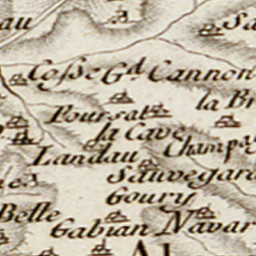 au
Sa
Cosse Gd Cannon
Poursat
la Br
la Cave
Landau
Champs
Sauvegard
Goury
Belle
Gabian
Navar
Al